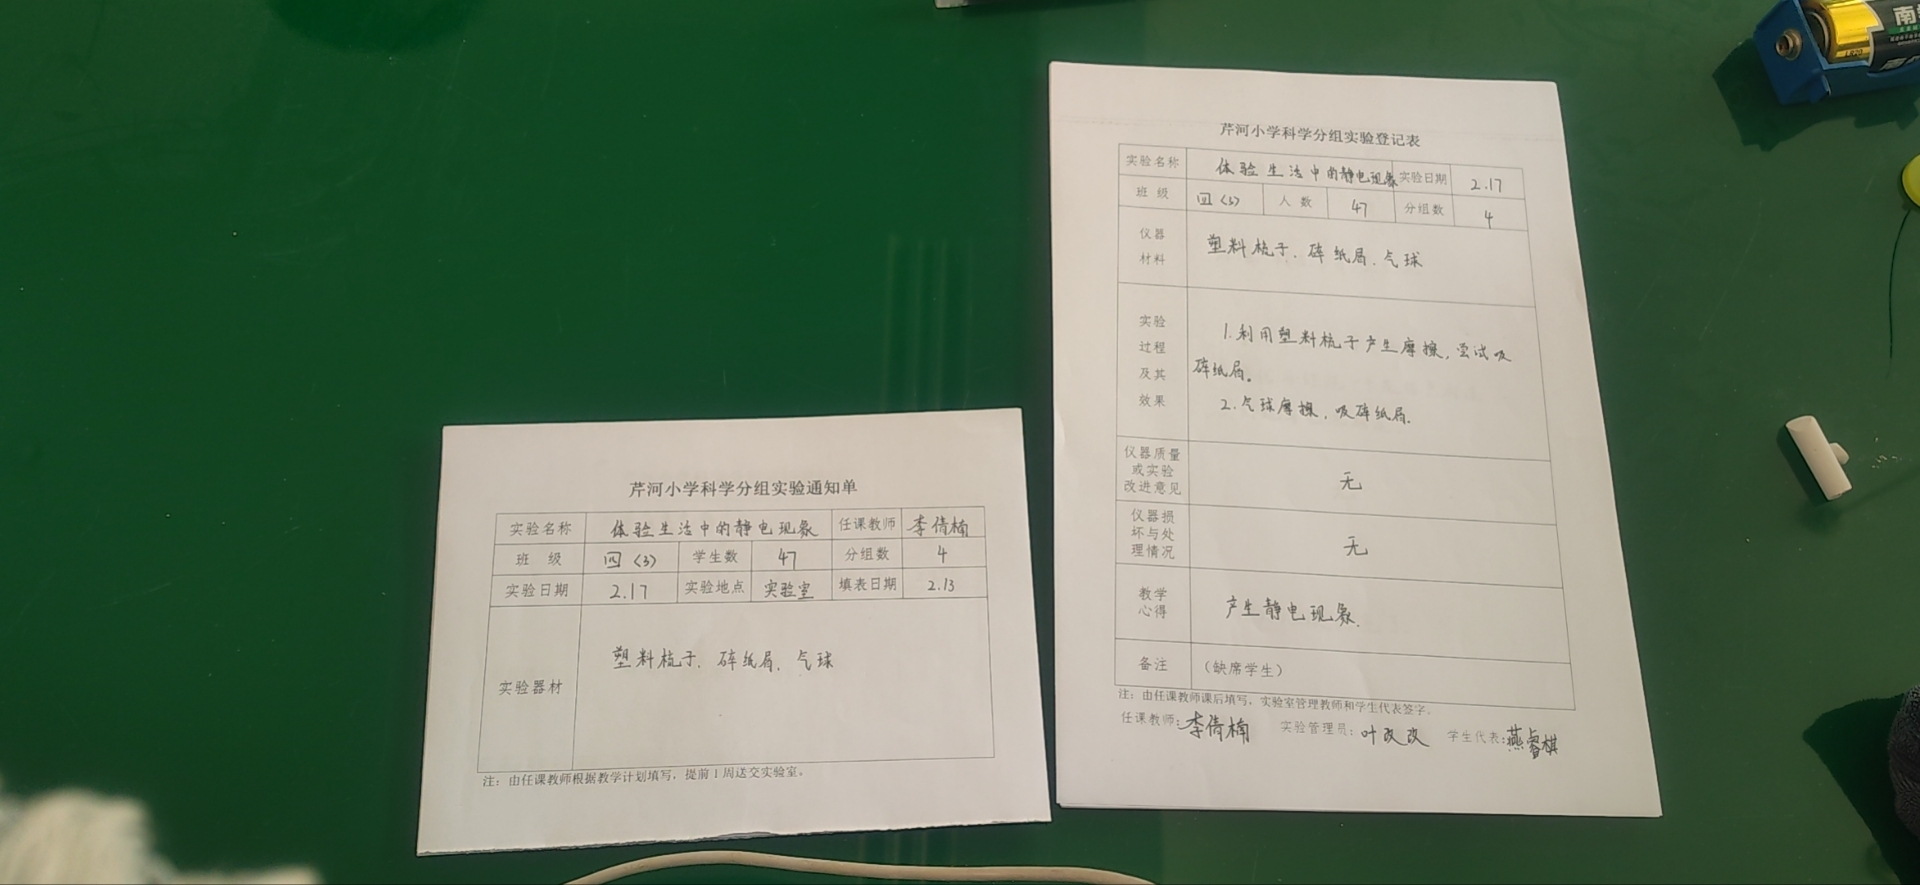 芹河小学科学分组实验通知单
实验名称 体验生活中的静电现象 任课教师 李倩楠
班 级 四（3） 学生数 47 分组数 4
实验日期 2.17 实验地点 实验室 填表日期 2.13
实验器材 塑料梳子、碎纸屑、气球
注：由任课教师根据教学计划填写，提前1周送交实验室。
芹河小学科学分组实验登记表
实验名称 体验生活中的静电现象 实验日期 2.17
班 级 四（3） 人 数 47 分组数 4
仪器
材料
塑料梳子、碎纸屑、气球
实验
过程
及其
效果
1.利用塑料梳子产生摩擦，尝试吸
碎纸屑。
2.气球摩擦，吸碎纸屑.
仪器质量
或实验
改进意见
无
仪器损
坏与处
理情况
无
教学
心得
产生静电现象.
备注 （缺席学生）
注：由任课教师课后填写，实验室管理教师和学生代表签字。
任课教师：李倩楠 实验管理员：叶改改 学生代表：燕睿棋
南